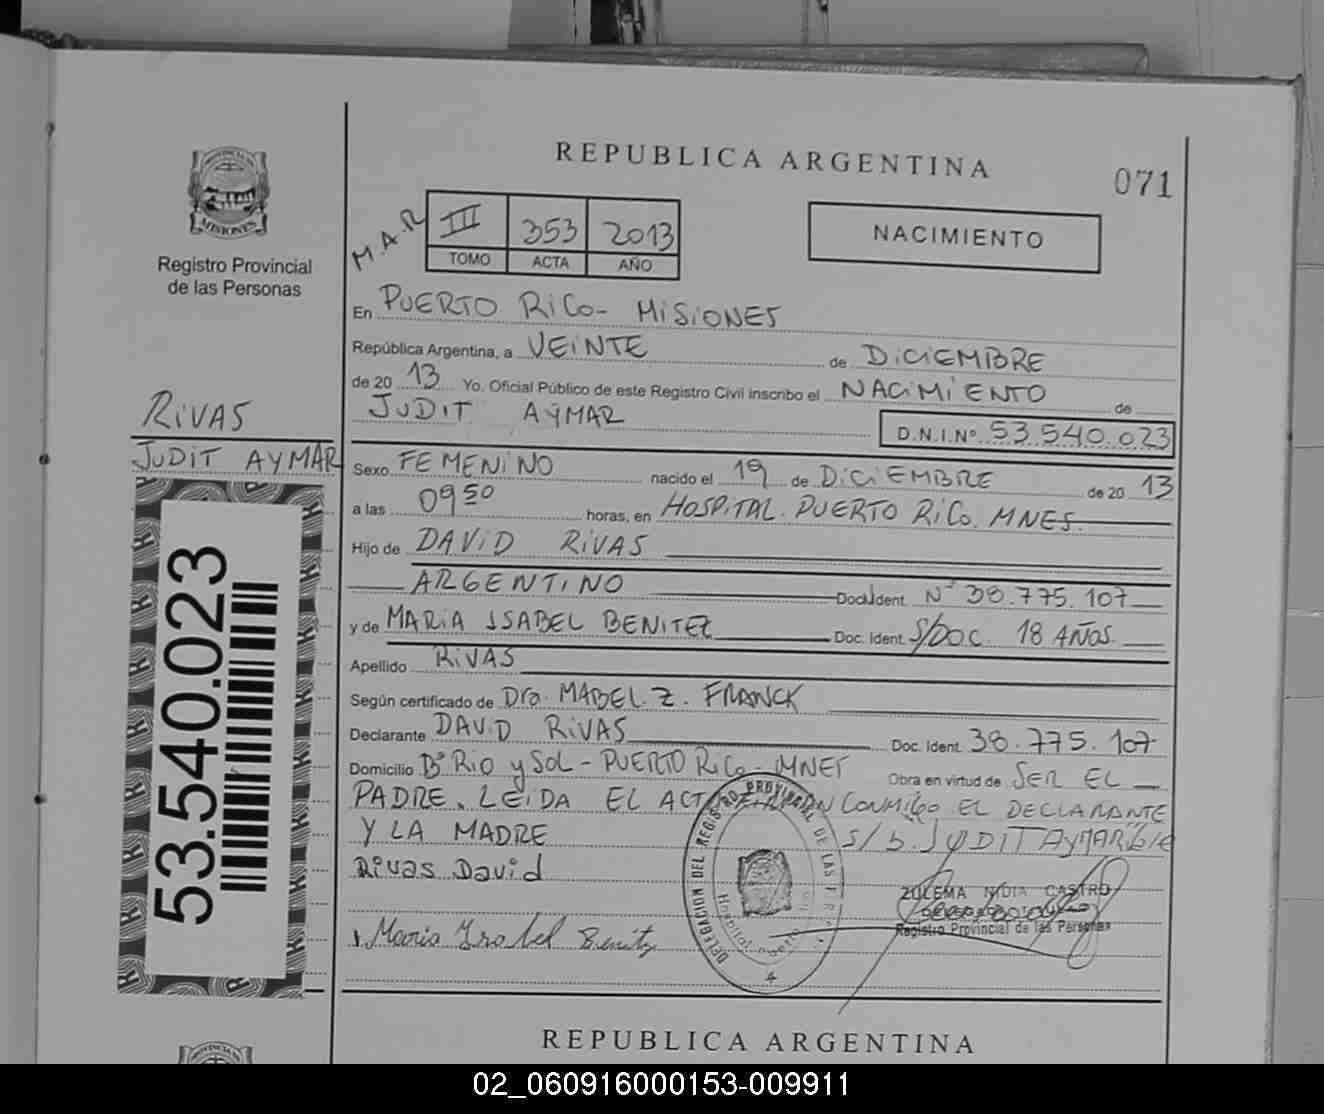 REPUBLICA ARGENTINA
071
PROVINCIA DE
MISIONES
Registro Provincial
de las Personas
M.A.R
III 353 2013
TOMO ACTA AÑO
NACIMIENTO
En PUERTO RICO - MISIONES
República Argentina, a VEINTE de DICIEMBRE
de 20 13 Yo. Oficial Público de este Registro Civil inscribo el NACIMIENTO de
JUDIT AYMAR
D.N.I.Nº 53.540.023
RIVAS
JUDIT AYMAR
Sexo FEMENINO nacido el 19 de DICIEMBRE de 20 13
a las 09 50 horas, en HOSPITAL. PUERTO RICO. MNES.
Hijo de DAVID RIVAS
ARGENTINO Doc. Ident. Nº 38.775.107
y de MARIA ISABEL BENITEZ Doc. Ident. S/DOC. 18 AÑOS.
Apellido RIVAS
Según certificado de Dra. MABEL Z. FRANCK
Declarante DAVID RIVAS Doc. Ident. 38.775.107
Domicilio Bº RIO y SOL - PUERTO RICO - MNES Obra en virtud de SER EL
PADRE. LEIDA EL ACTA FIRMAN CONMIGO EL DECLARANTE
Y LA MADRE S/B. JUDIT AYMAR
Rivas David
Maria Isabel Benitez
ZULEMA NIDIA CASTRO
Registro Provincial de las Personas
DELEGACION DEL REGISTRO PROVINCIAL DE LAS
Hospital Puerto
53.540.023
REPUBLICA ARGENTINA
02_060916000153-009911